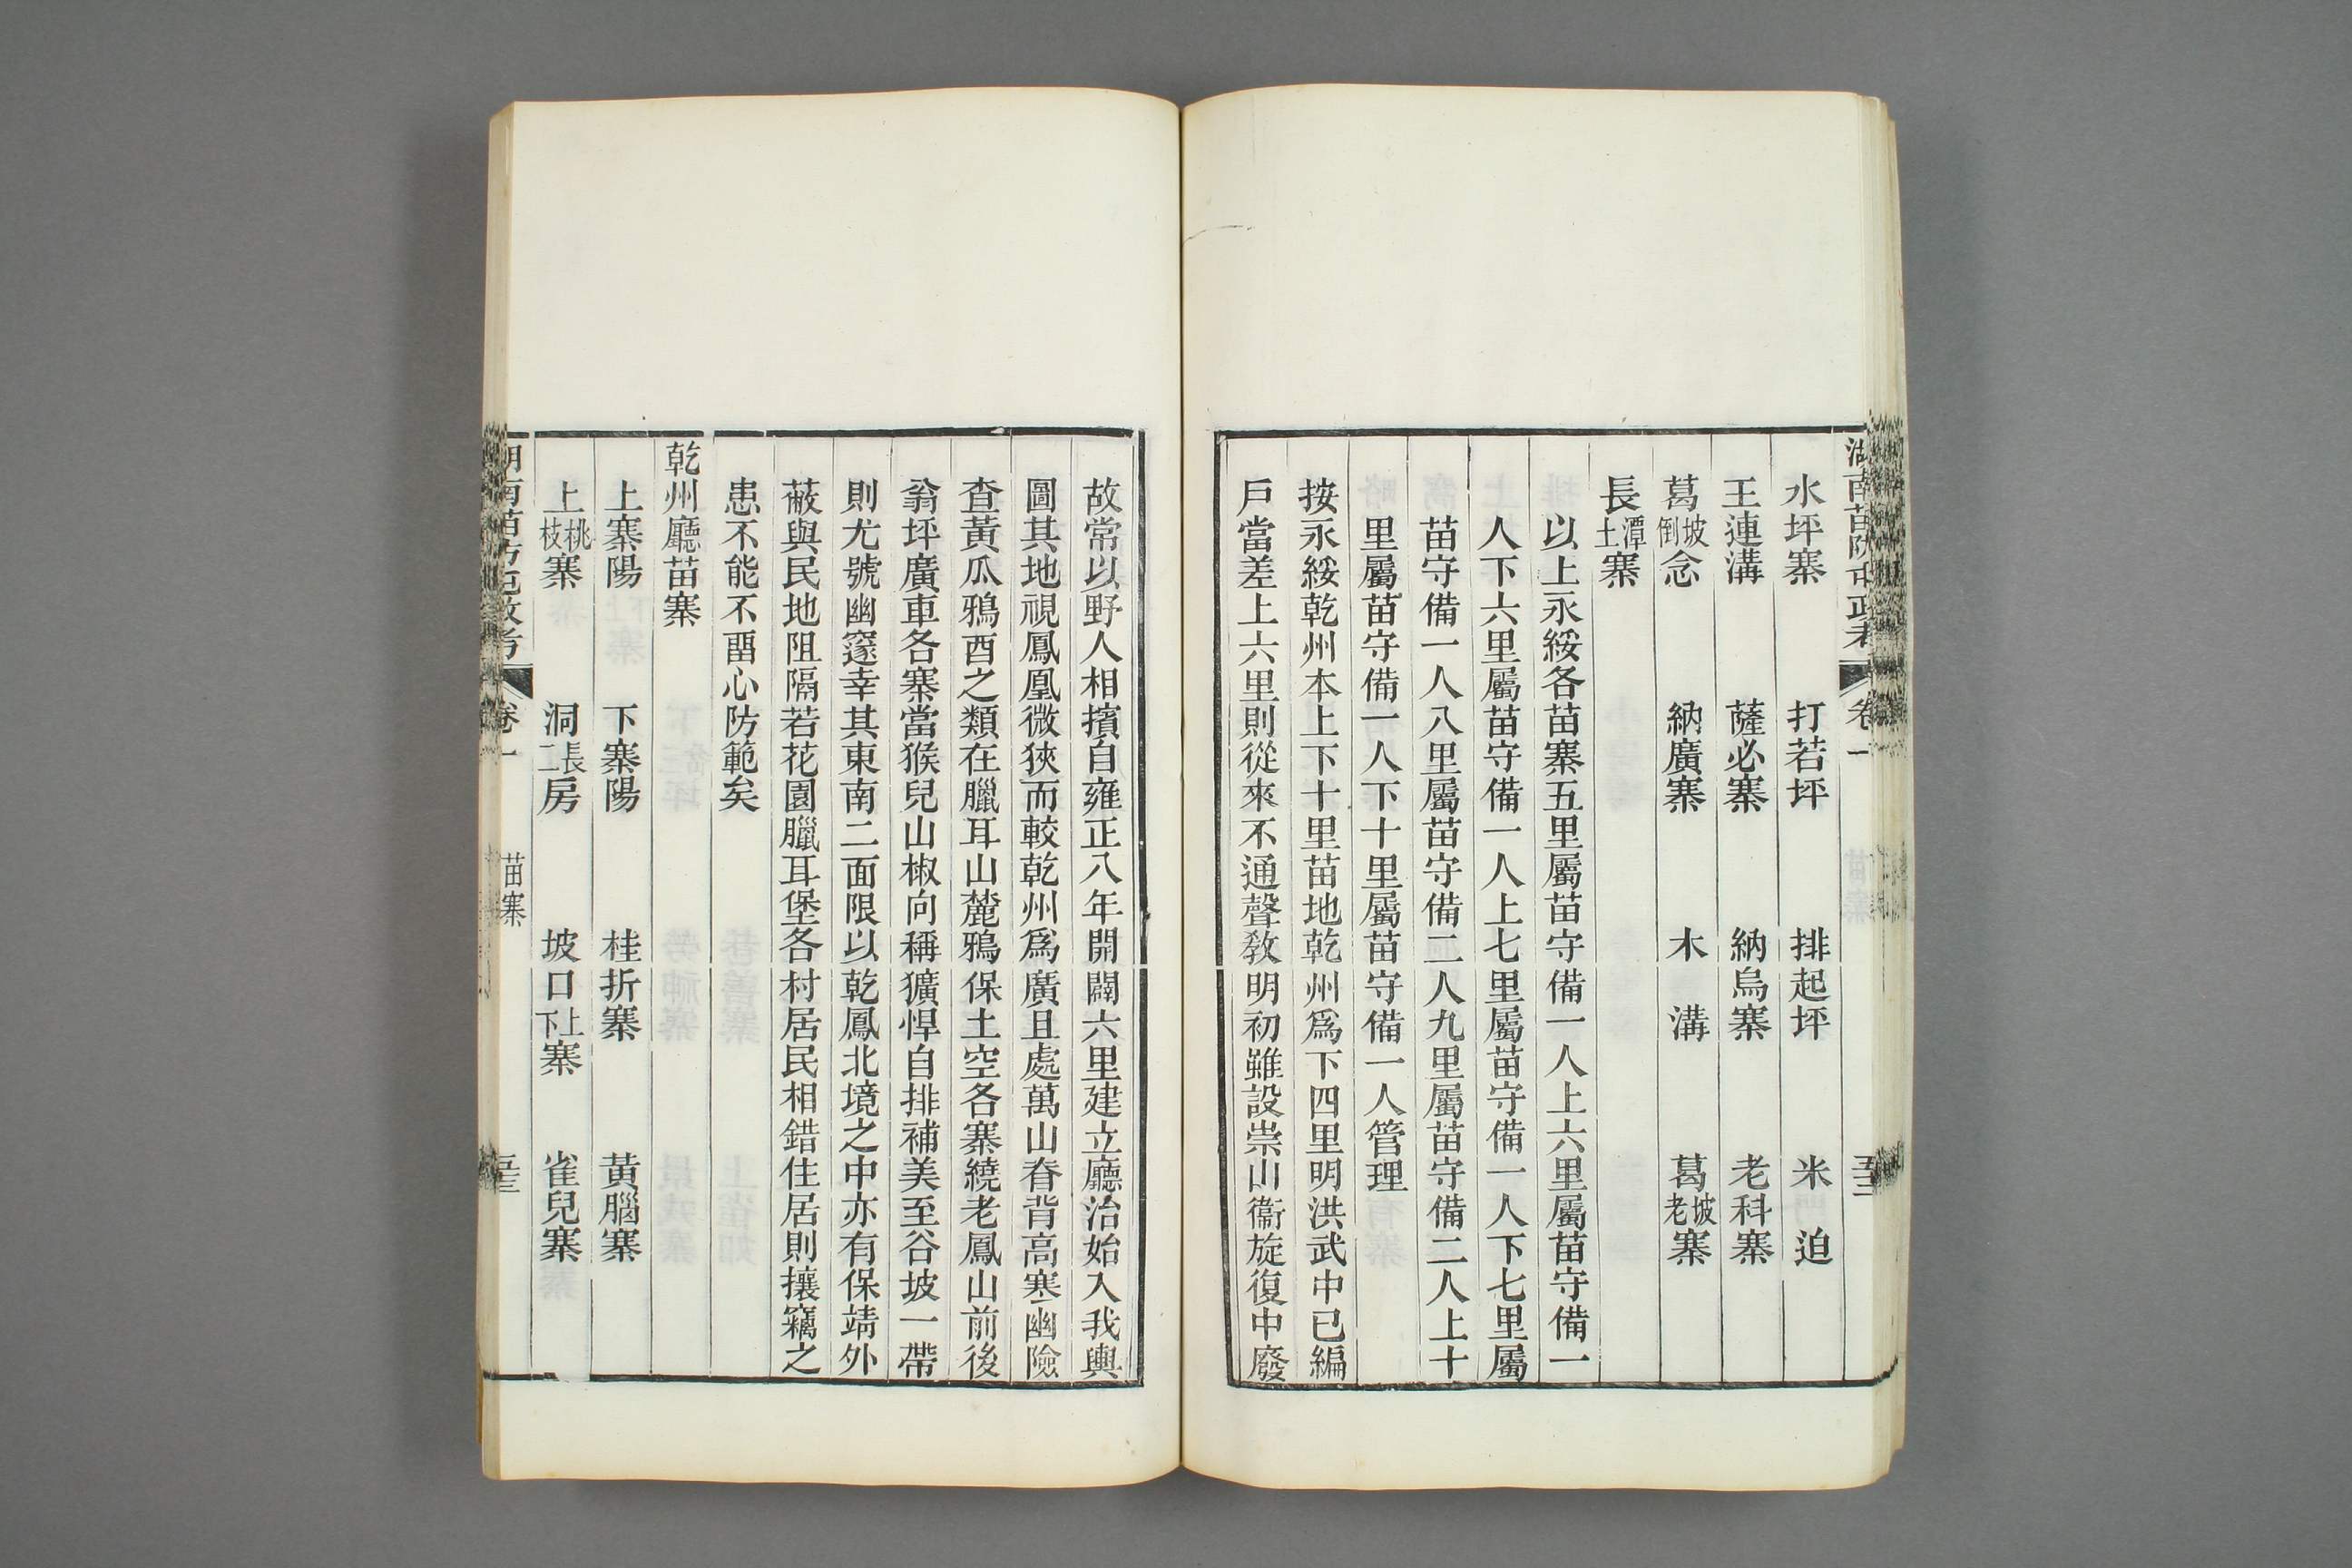 湖南苗防屯政考 卷一 五十二
水坪寨 打若坪 排起坪 米迫
王連溝 薩必寨 納烏寨 老科寨
葛坡倒念 納廣寨 木溝 葛坡老寨
長潭土寨
以上永綏各苗寨五里屬苗守備一人上六里屬苗守備一
人下六里屬苗守備一人上七里屬苗守備一人下七里屬
苗守備一人八里屬苗守備二人九里屬苗守備二人上十
里屬苗守備一人下十里屬苗守備一人管理
按永綏乾州本上下十里苗地乾州爲下四里明洪武中已編
戶當差上六里則從來不通聲敎明初雖設崇山衞旋復中廢
故常以野人相擯自雍正八年開闢六里建立廳治始入我輿
圖其地視鳳凰微狹而較乾州爲廣且處萬山脊背高寒幽險
查黃瓜鴉酉之類在臘耳山麓鴉保土空各寨繞老鳳山前後
翁坪廣車各寨當猴兒山椒向稱獷悍自排補美至谷坡一帶
則尤號幽邃幸其東南二面限以乾鳳北境之中亦有保靖外
蔽與民地阻隔若花園臘耳堡各村居民相錯住居則攘竊之
患不能不畱心防範矣
乾州廳苗寨
上寨陽 下寨陽 桂折寨 黃腦寨
上桃枝寨 洞長二房 坡口上下寨 雀兒寨
湖南苗防屯政考 卷一 苗寨 五十三